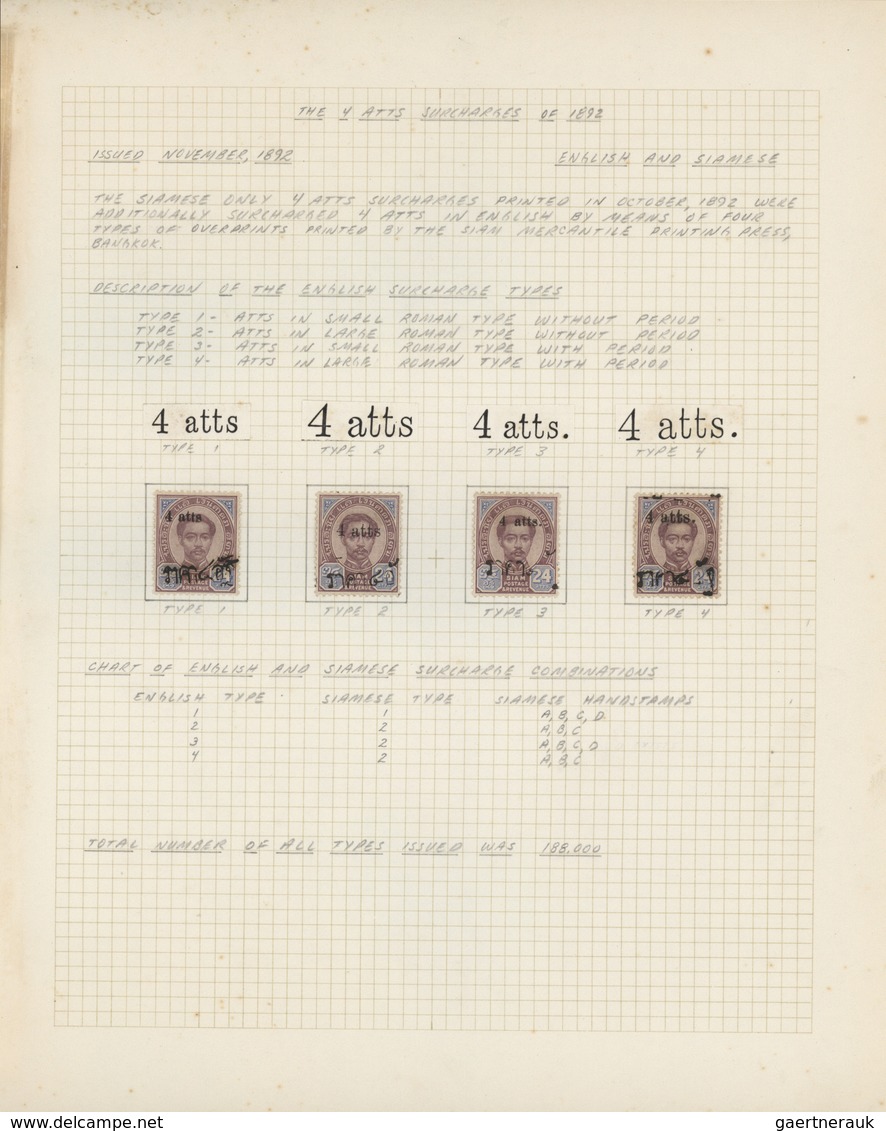 THE 4 ATTS SURCHARGES OF 1892
ISSUED NOVEMBER, 1892
ENGLISH AND SIAMESE
THE SIAMESE ONLY 4 ATTS SURCHARGES PRINTED IN OCTOBER, 1892 WERE
ADDITIONALLY SURCHARGED 4 ATTS IN ENGLISH BY MEANS OF FOUR
TYPES OF OVERPRINTS PRINTED BY THE SIAM MERCANTILE PRINTING PRESS,
BANGKOK.
DESCRIPTION OF THE ENGLISH SURCHARGE TYPES
TYPE 1- ATTS IN SMALL ROMAN TYPE WITHOUT PERIOD
TYPE 2- ATTS IN LARGE ROMAN TYPE WITHOUT PERIOD
TYPE 3- ATTS IN SMALL ROMAN TYPE WITH PERIOD
TYPE 4- ATTS IN LARGE ROMAN TYPE WITH PERIOD
4 atts 4 atts 4 atts. 4 atts.
TYPE 1 TYPE 2 TYPE 3 TYPE 4
4 atts 4 atts 4 atts. 4 atts.
SIAM 24
POSTAGE
& REVENUE
TYPE 1 TYPE 2 TYPE 3 TYPE 4
CHART OF ENGLISH AND SIAMESE SURCHARGE COMBINATIONS
ENGLISH TYPE SIAMESE TYPE SIAMESE HANDSTAMPS
1 1 A, B, C, D
2 2 A, B, C
3 2 A, B, C, D
4 2 A, B, C
TOTAL NUMBER OF ALL TYPES ISSUED WAS 188,000
www.delcampe.net
gaertnerauk